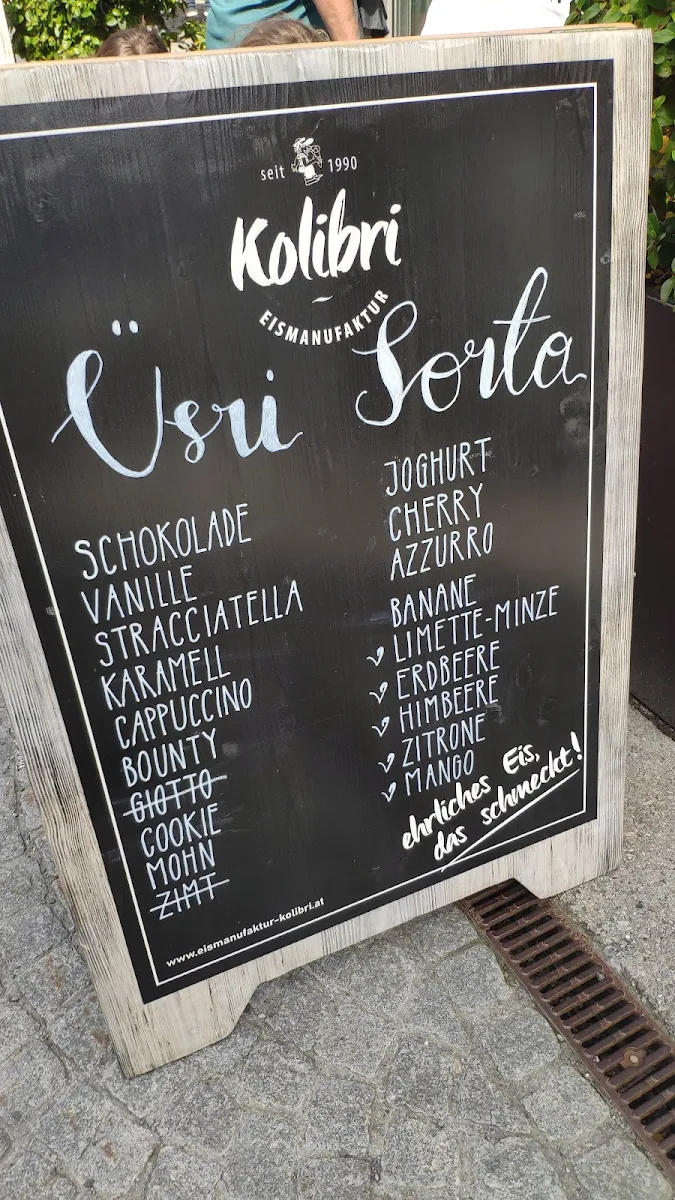 seit 1990
Kolibri
EISMANUFAKTUR
Üsri Sorta
SCHOKOLADE
VANILLE
STRACCIATELLA
KARAMELL
CAPPUCCINO
BOUNTY
GIOTTO
COOKIE
MOHN
ZIMT
JOGHURT
CHERRY
AZZURRO
BANANE
LIMETTE-MINZE
ERDBEERE
HIMBEERE
ZITRONE
MANGO
ehrliches Eis,
das schmeckt!
www.eismanufaktur-kolibri.at